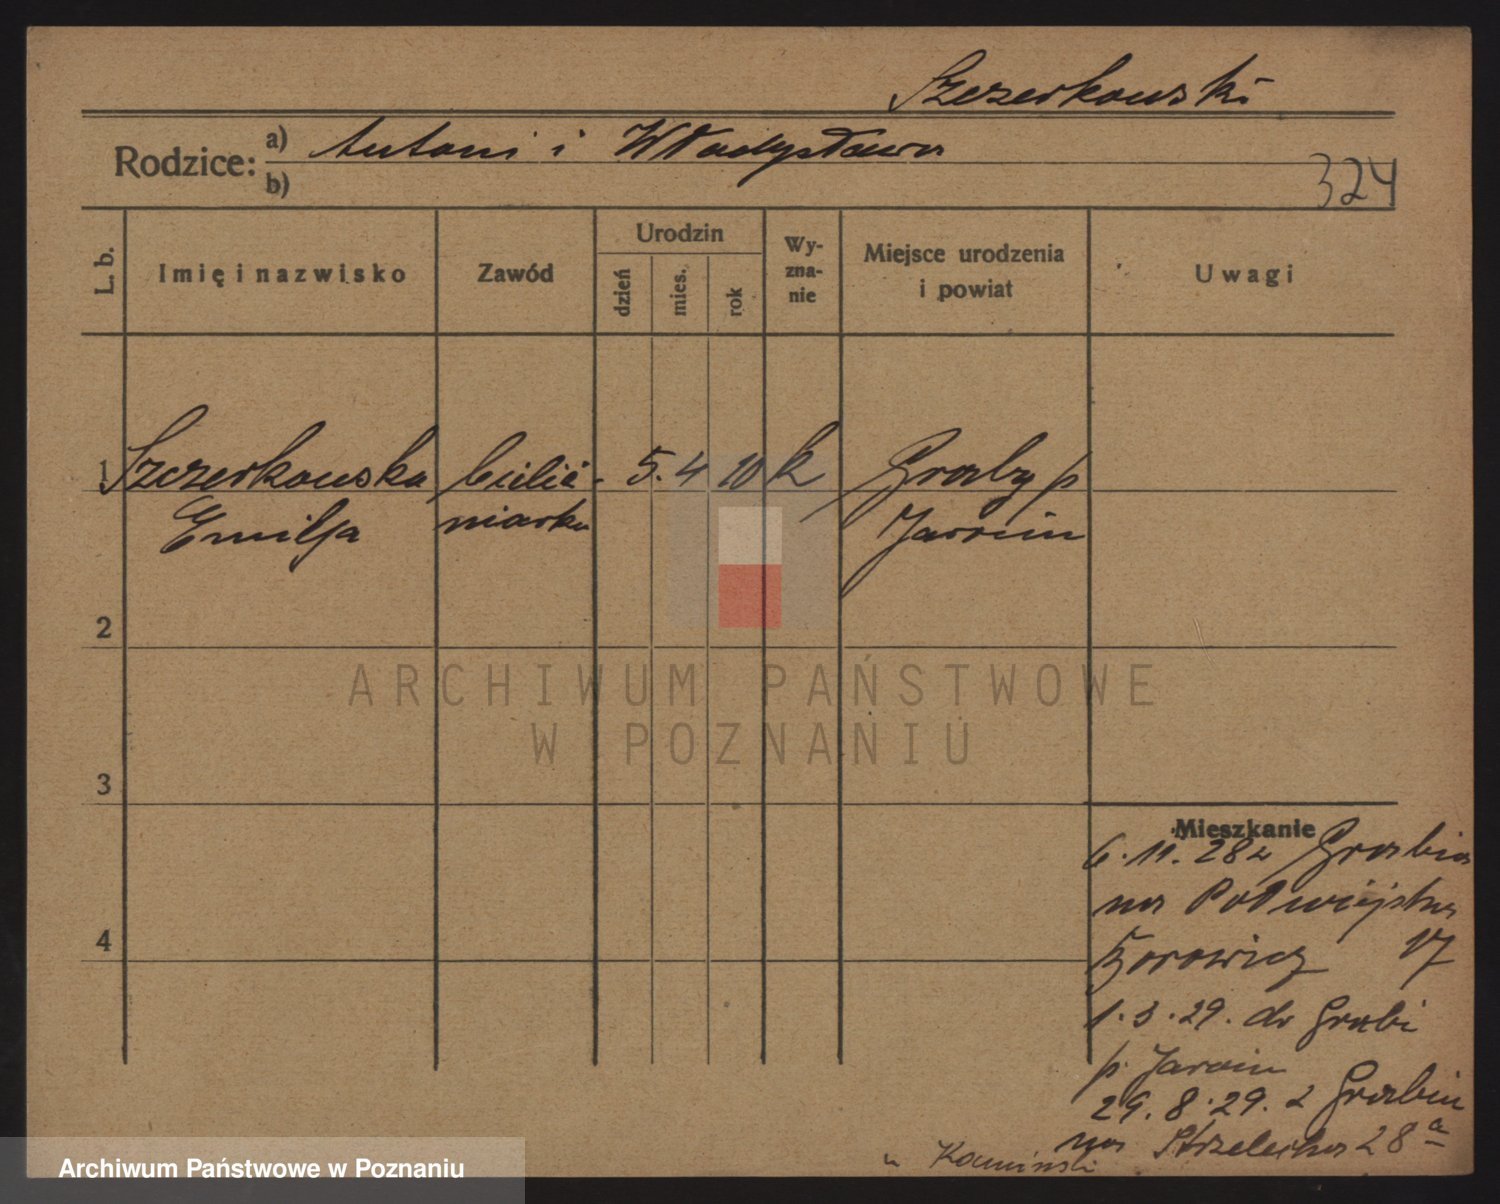 Szczerkowski
Rodzice: a) Antoni i Władysława
b)
324
L. b.
Imię i nazwisko
Zawód
Urodzin
dzień
mies.
rok
Wy-
zna-
nie
Miejsce urodzenia
i powiat
Uwagi
1 Szczerkowska 5. 4 10 k Graby p
Emilja niarka Jarocin
2
3
4
Mieszkanie
6.11.28 z Grabia
na Półwiejska
Borowicz 17
1.3.29. do Grabi
p. Jarocin
29.8.29. z Grabiu
na Strzelecka 28a
u Kamiński
ARCHIWUM PAŃSTWOWE
W POZNANIU
Archiwum Państwowe w Poznaniu